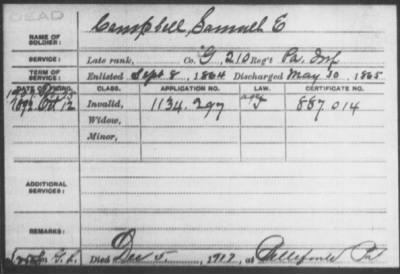 DEAD
NAME OF SOLDIER: Campbell, Samuel E
SERVICE: Late rank, Co. G, 210 Reg't Pa. Inf
TERM OF SERVICE: Enlisted Sept 8, 1864 Discharged May 30, 1865
CLASS. APPLICATION NO. LAW. CERTIFICATE NO.
1892 Oct 12 Invalid, 1134.297 887 014
Widow,
Minor,
ADDITIONAL SERVICES:
REMARKS:
Died Dec 5, 1917, at Bellefonte Pa